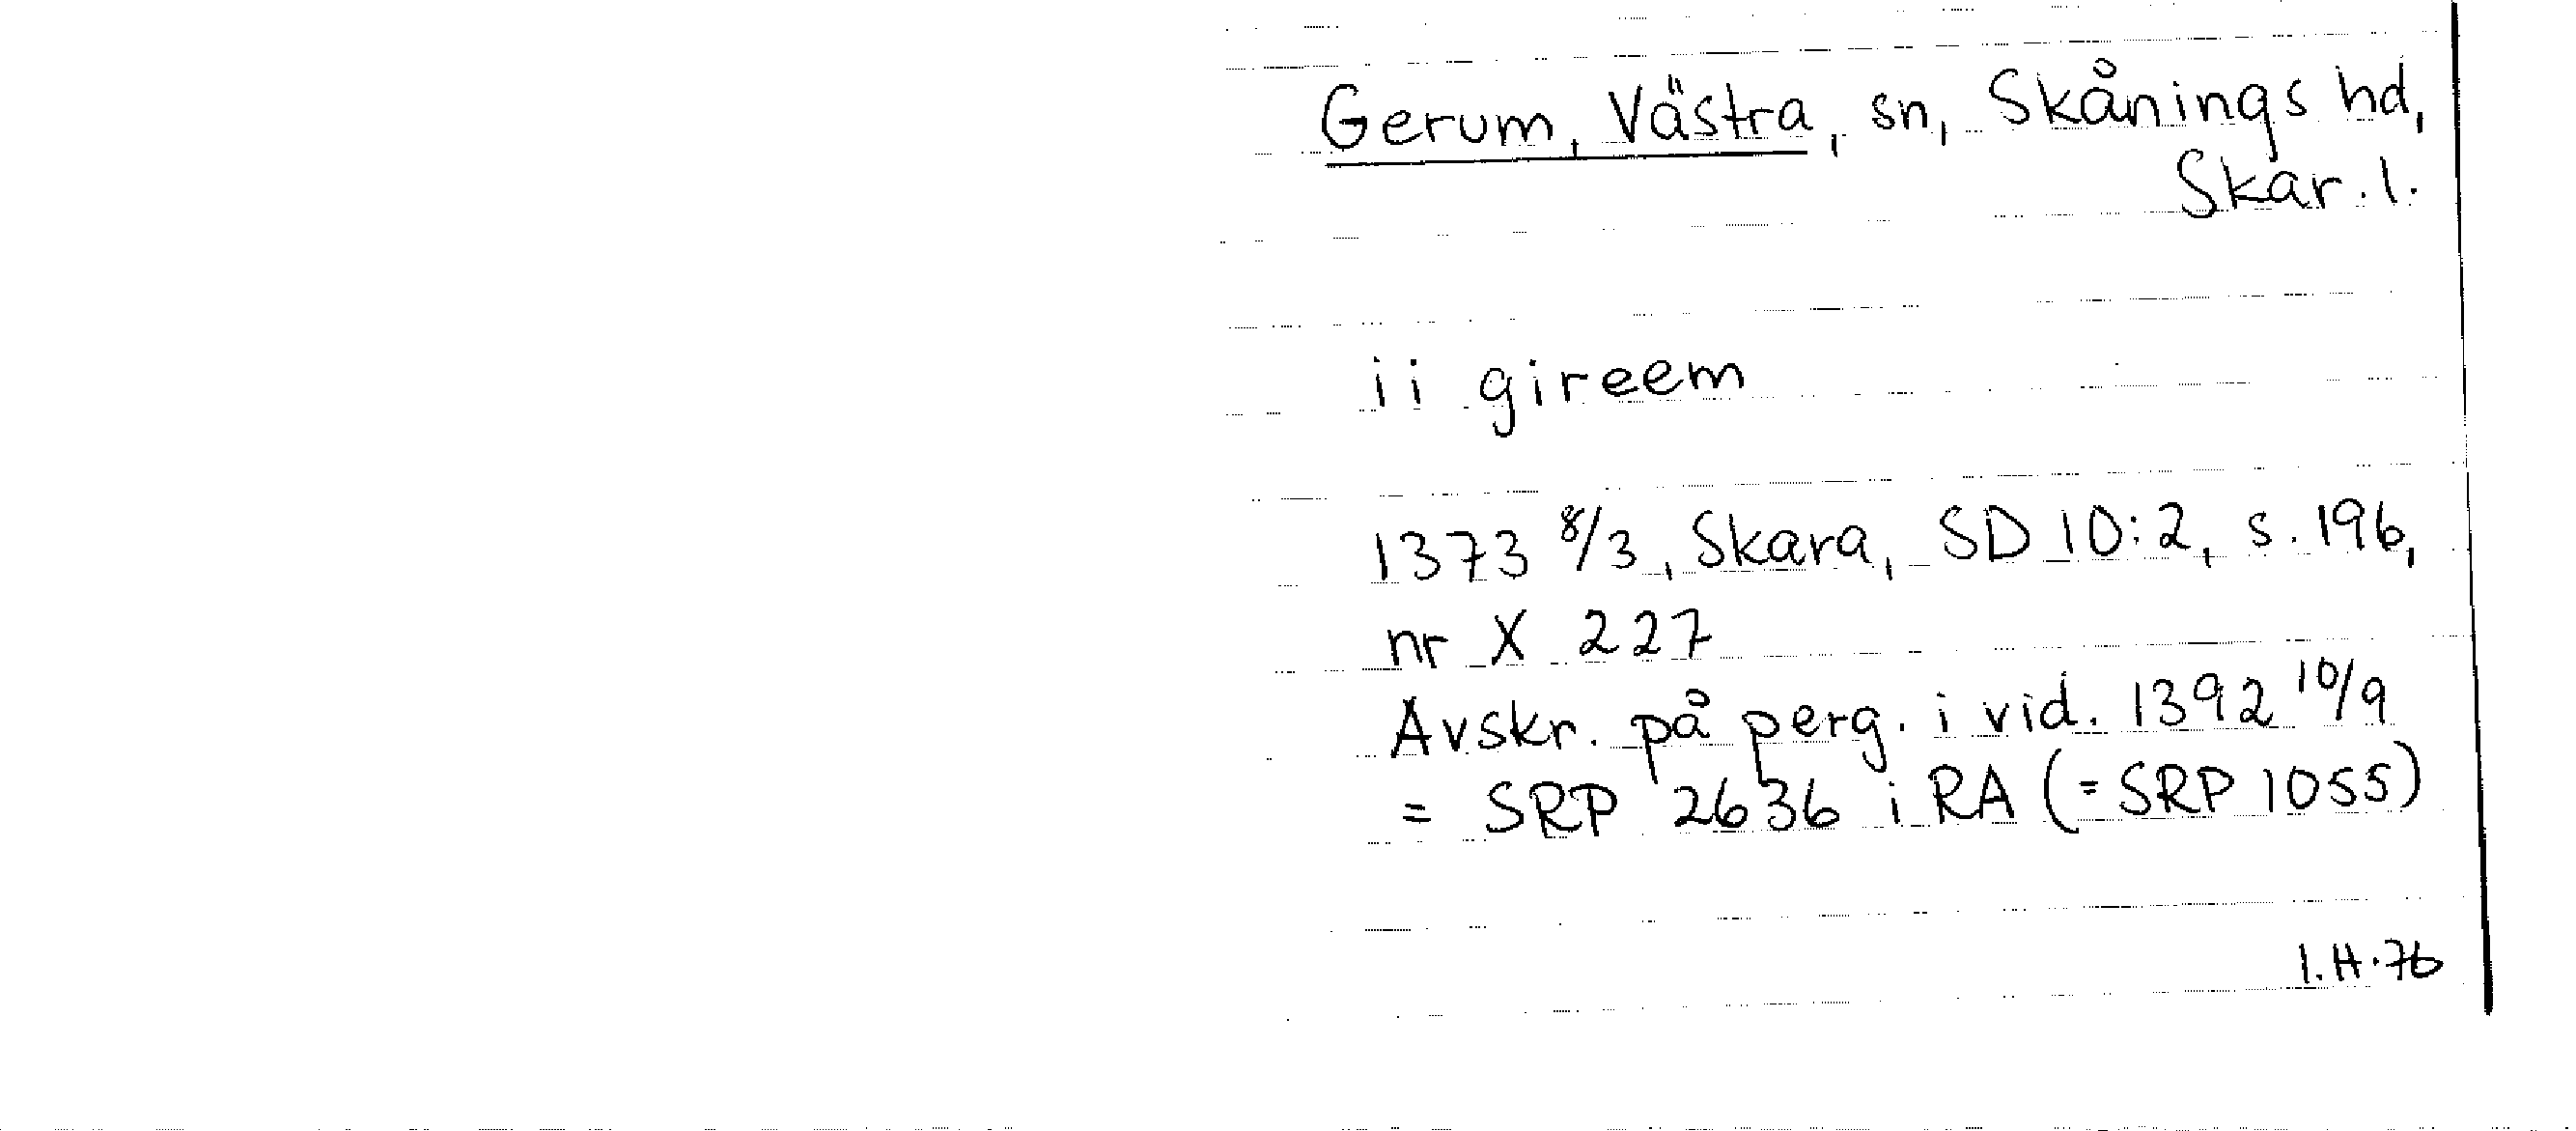 Gerum, Västra, sn, Skånings hd,
Skar. l.
ii gireem
1373 8/3, Skara, SD 10:2, s. 196,
nr X 227
Avskr. på perg. i vid. 1392 10/9
= SRP 2636 i RA (= SRP 1055)
I.H.76